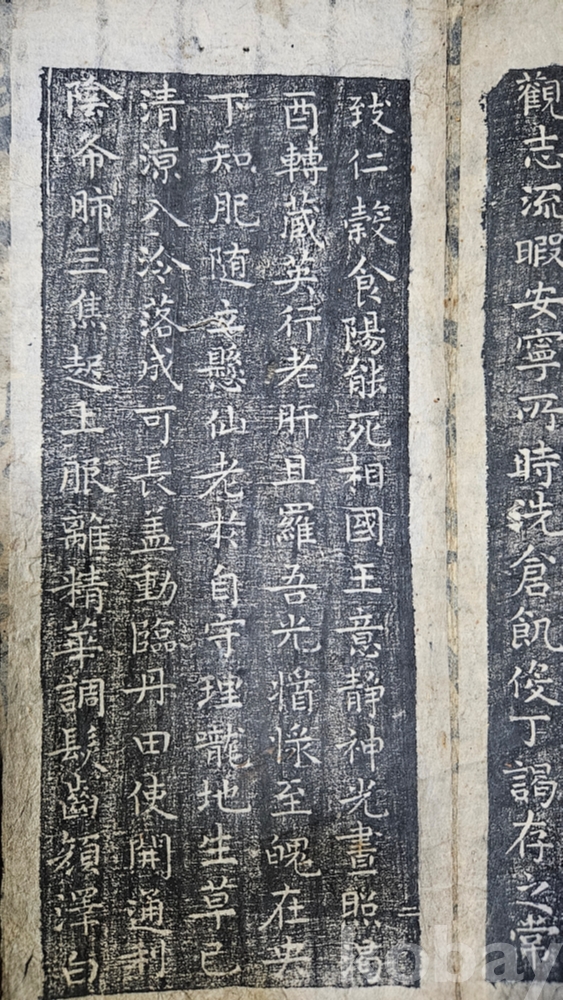 觀志流暇安寧所時洗倉飢俊丁謁存之常
致仁榖食陽能死相國王意静神光晝照渴
酉轉蔵英行老肝且羅吾光惜條至魄在央
下知肥随立懸仙老求自守理嚨地生草已
清涼入冷落成可長盖動臨丹田使開通利
陰希肺三焦起上服離精華調髮齒顔澤白
二